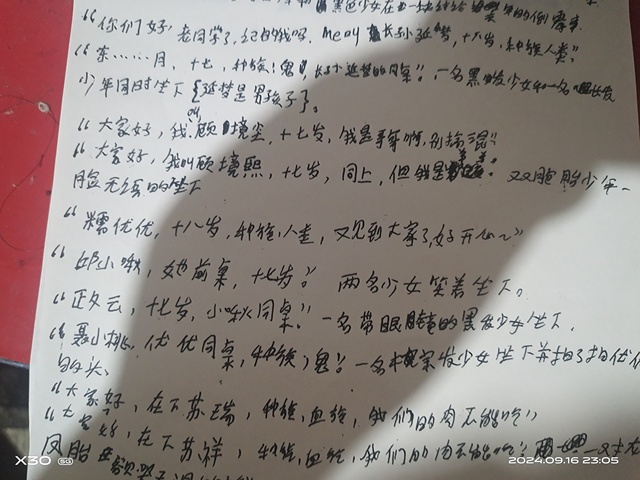 黑色少女在
“你们好，老同学了，记的我吗，me叫长孙延梦，十八岁，种族人类。”
“东……月，十七，种族：鬼，长孙延梦的同桌”。一名黑发少女和一名长发
少年同时坐下{延梦是男孩子}。
“大家好，我叫顾境尘，十七岁，我是哥哥啊，别搞混”
“大家好，我叫顾境熙，十七岁，同上，但我是弟弟。”双胞胎少年一
脸无奈的坐下
“糯优优，十八岁，种族人类，又见到大家了，好开心~”
“邱小啾，她前桌，十七岁。”两名少女笑着坐下。
“正夕云，十七岁，小啾同桌。”一名带眼睛的黑发少女坐下，
“聂小桃，优优同桌，种族：鬼。”一名棕发少女坐下并拍了拍优优
的头，
“大家好，在下苏瑞，种族，血族，我们的肉不能吃”
“大家好，在下苏祥，种族，血族，我们的肉不能吃”一对龙
凤胎
X30 5G
2024.09.16 23:05